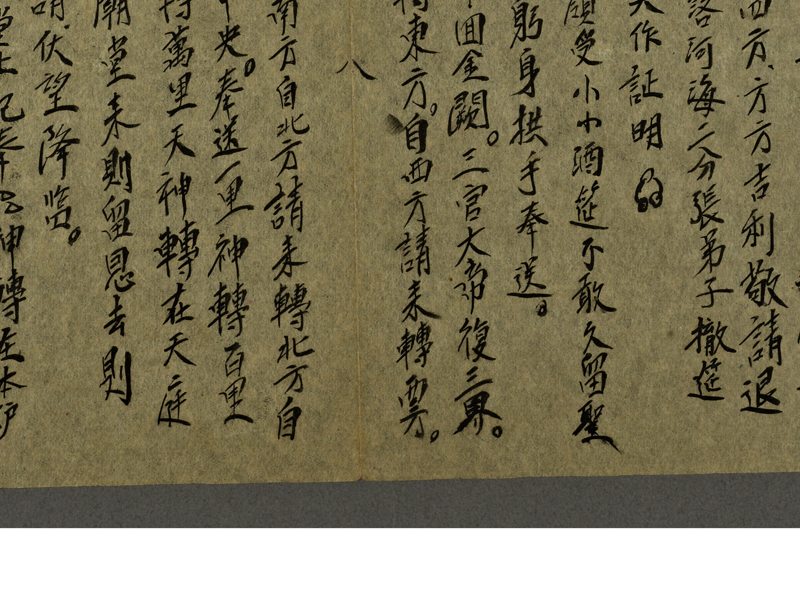 西方方方吉利敬請退
河海二分張弟子撤筵
作証明
受小小酒筵不敢久留聖
躬身拱手奉送。
回金闕。三官大帝復三界。
東方。自西方請来轉西方。
八
南方自北方請来轉北方自
中央。奉送一里神轉百里
萬里天神轉在天庭
廟堂来則留恩去則
伏望降臨。
神轉在本炉